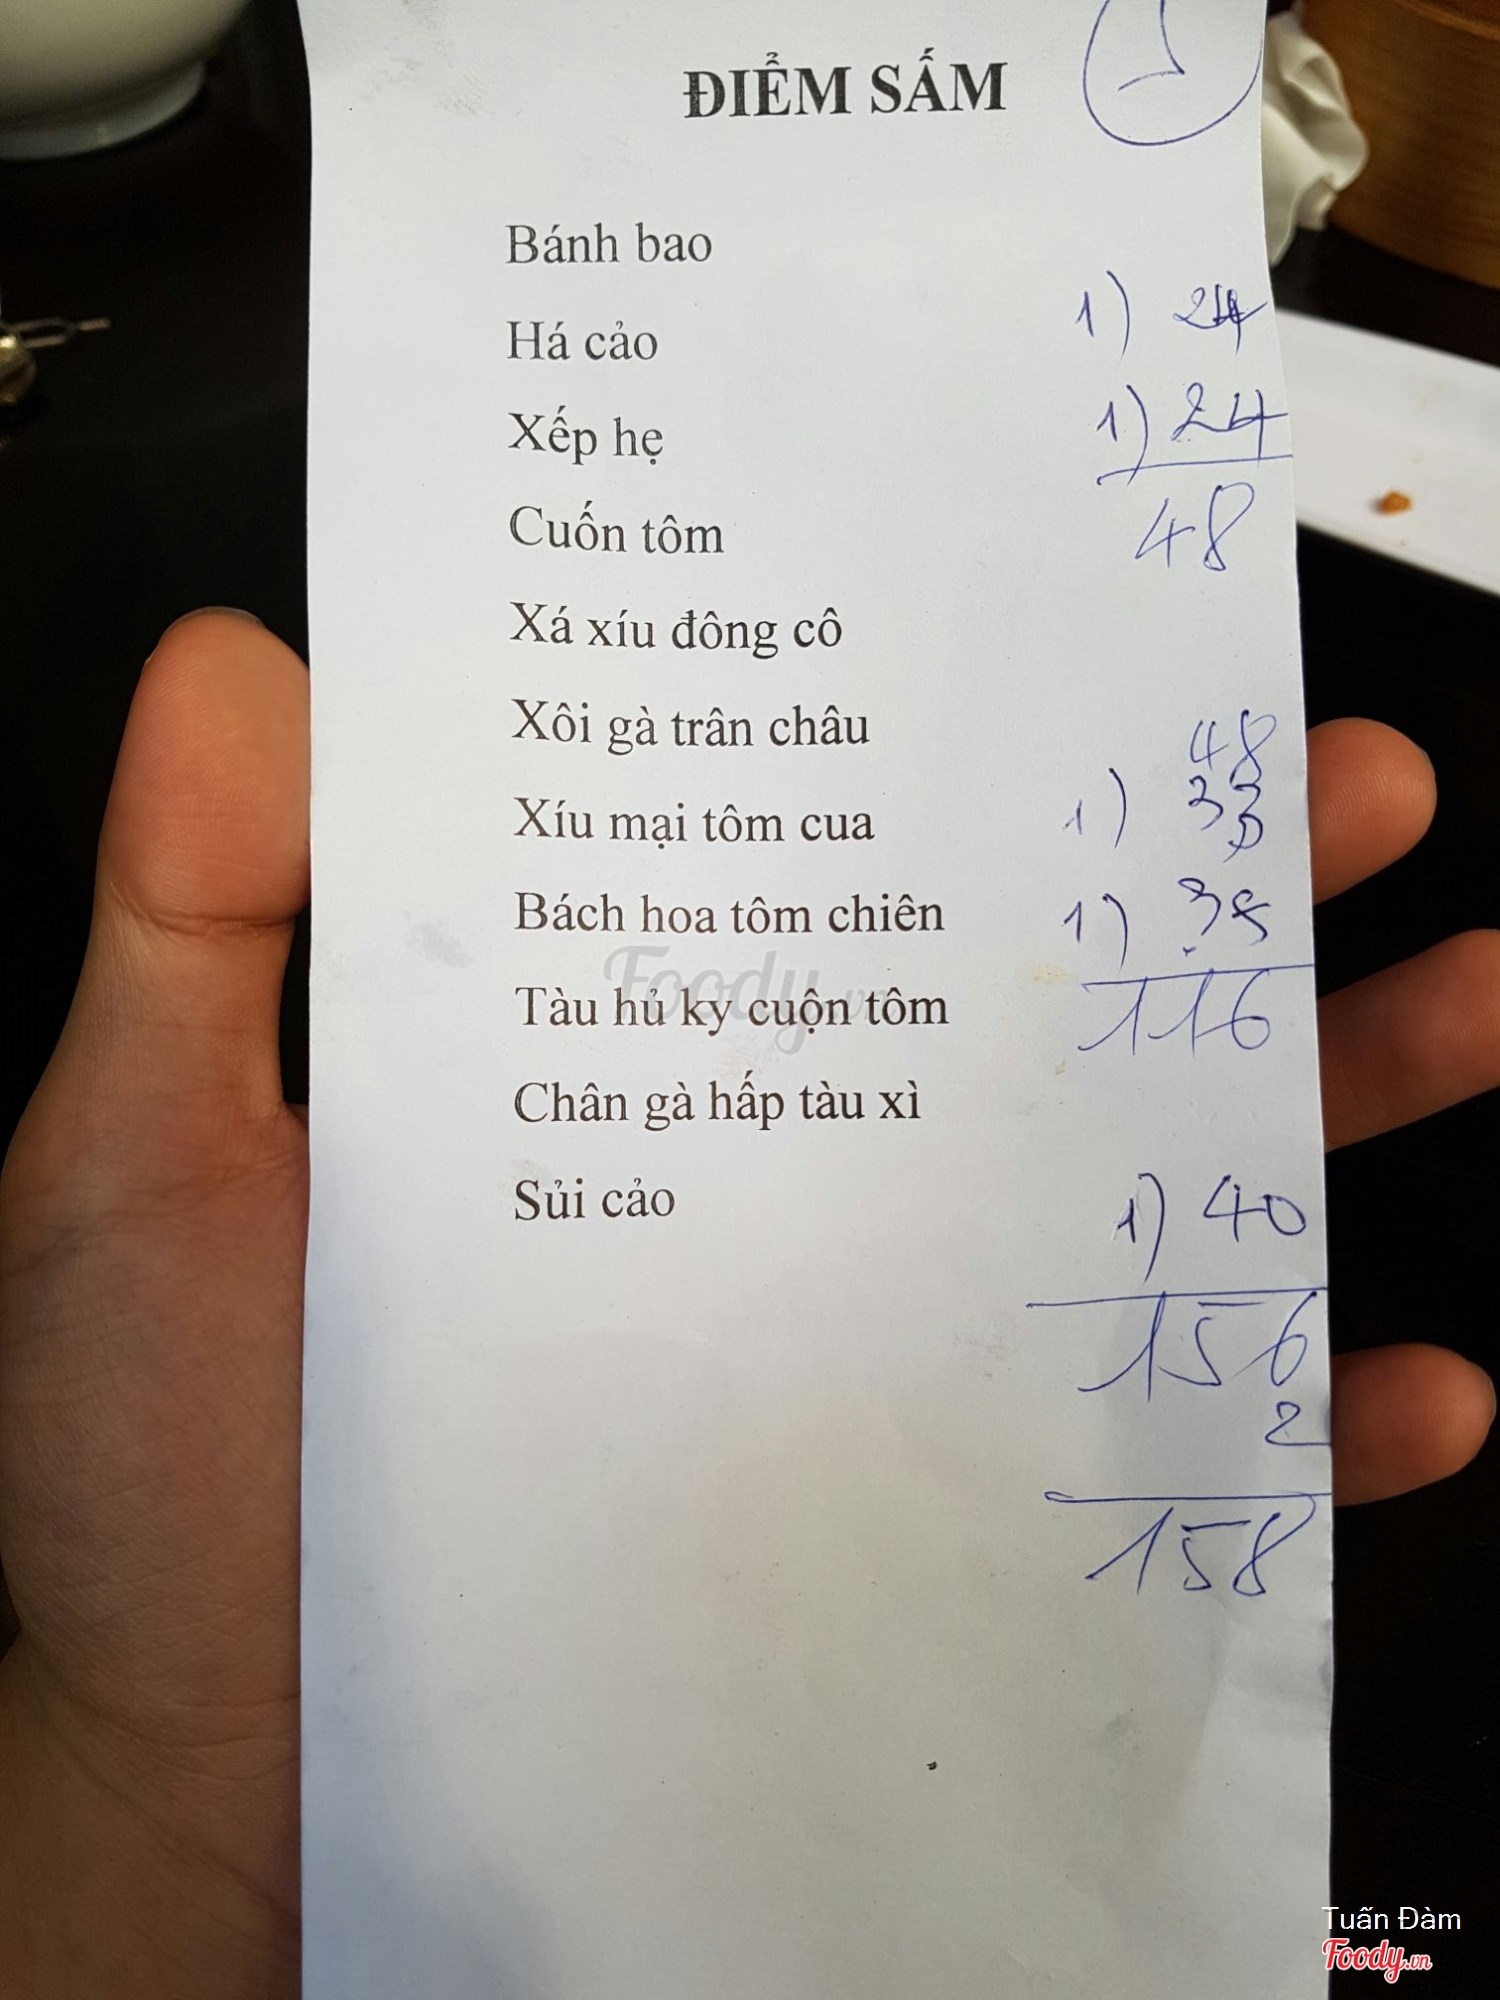 ĐIỂM SẤM
1
Bánh bao
Há cảo 1) 24
Xếp hẹ 1) 24
48
Cuốn tôm
Xá xíu đông cô
Xôi gà trân châu 48
Xíu mại tôm cua 1) 33
Bách hoa tôm chiên 1) 35
Foody.vn
Tàu hủ ky cuộn tôm 116
Chân gà hấp tàu xì
Sủi cảo 1) 40
156
2
158
Tuấn Đàm
Foody.vn